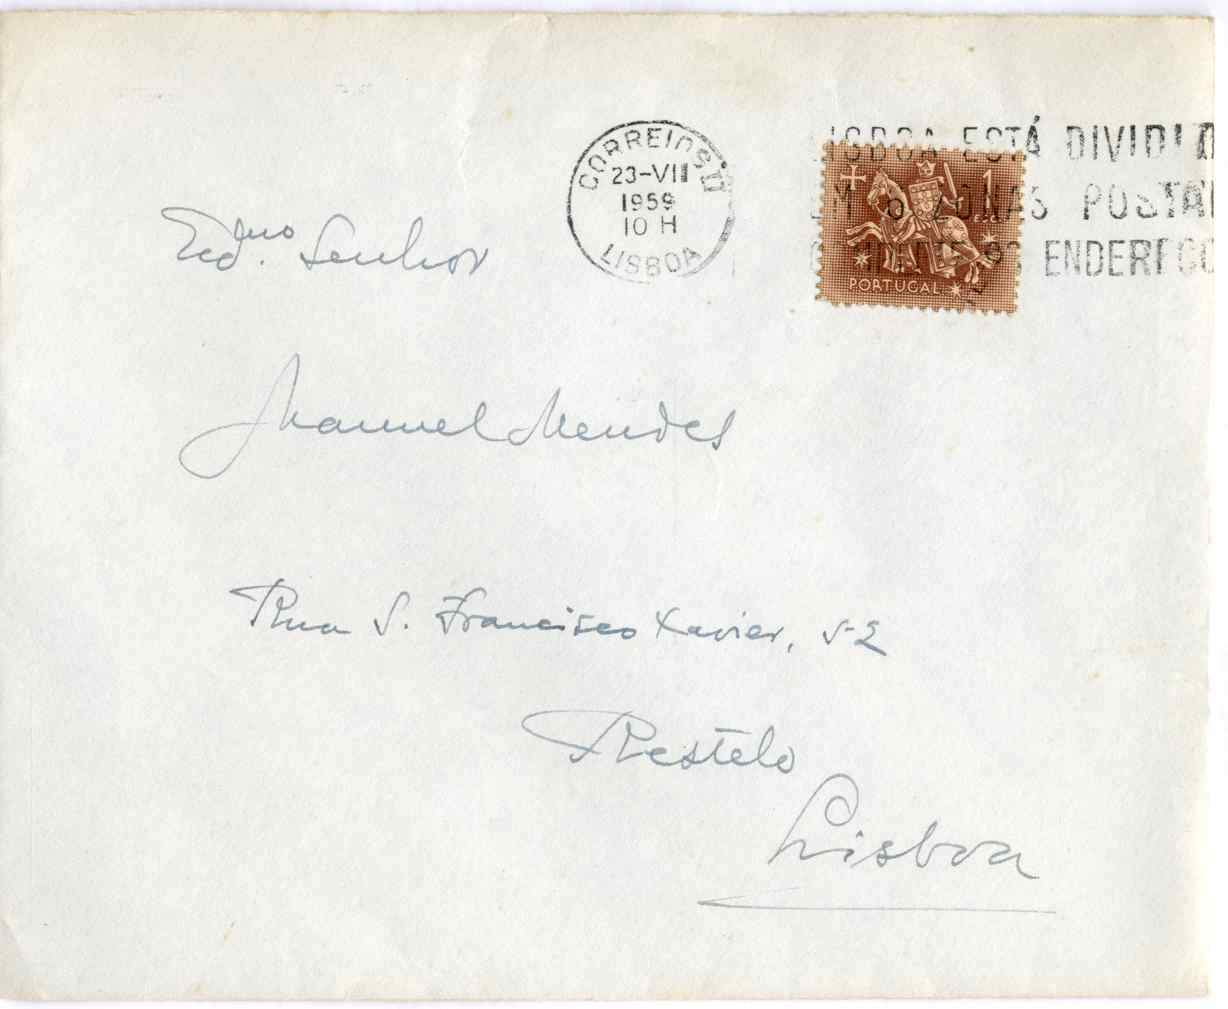 CORREIOS
23-VII
1959
10 H
LISBOA
LISBOA ESTÁ DIVIDID
EM 6 ZONAS POSTAI
ENDEREÇO
1
PORTUGAL
Exmo. Senhor
Manuel Mendes
Rua S. Francisco Xavier, 52
Restelo
Lisboa